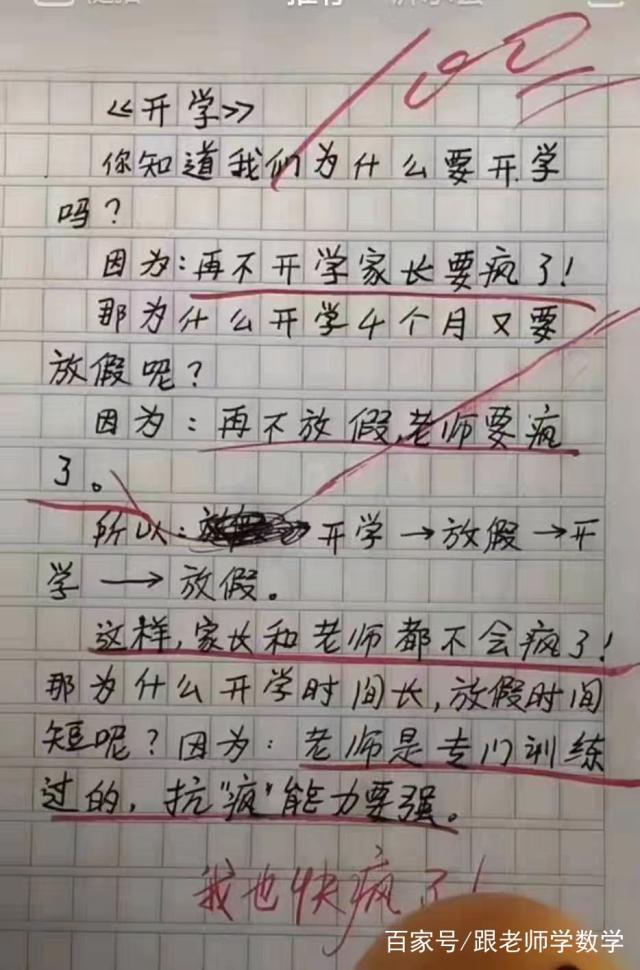 100
《开学》
你知道我们为什么要开学
吗？
因为：再不开学家长要疯了！
那为什么开学4个月又要
放假呢？
因为：再不放假，老师要疯
了。
所以：开学→放假→开
学→放假。
这样，家长和老师都不会疯了！
那为什么开学时间长，放假时间
短呢？因为：老师是专门训练
过的，抗"疯"能力要强。
我也快疯了！
百家号/跟老师学数学